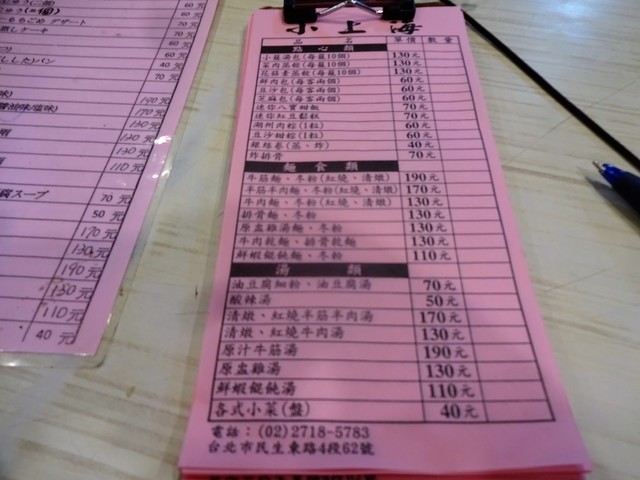 小上海
品名 單價 數量
點心類
小籠湯包(每籠10個) 130元
菜肉蒸餃(每籠10個) 130元
花菇素蒸餃(每籠10個) 130元
鮮肉包(每客兩個) 60元
豆沙包(每客兩個) 60元
芝麻包(每客兩個) 60元
迷你八寶甜飯 70元
迷你紅豆鬆糕 70元
湖州肉粽(1粒) 60元
豆沙甜粽(1粒) 60元
銀絲卷(蒸、炸) 40元
炸排骨 70元
麵食類
牛筋麵、冬粉(紅燒、清燉) 190元
半筋半肉麵、冬粉(紅燒、清燉) 170元
牛肉麵、冬粉(紅燒、清燉) 130元
排骨麵、冬粉 130元
原盅雞湯麵、冬粉 130元
牛肉乾麵、排骨乾麵 130元
鮮蝦餛飩麵、冬粉 110元
湯類
油豆腐細粉、油豆腐湯 70元
酸辣湯 50元
清燉、紅燒半筋半肉湯 170元
清燉、紅燒牛肉湯 130元
原汁牛筋湯 190元
原盅雞湯 130元
鮮蝦餛飩湯 110元
各式小菜(盤) 40元
電話：(02)2718-5783
台北市民生東路4段62號
60元
ももごめ デザート 70元
蒸しケーキ 70元
60元
60元
パン 40元
70元
190元
170元
130元
130元
130元
110元
スープ 70元
50元
170元
130元
190元
130元
110元
40元